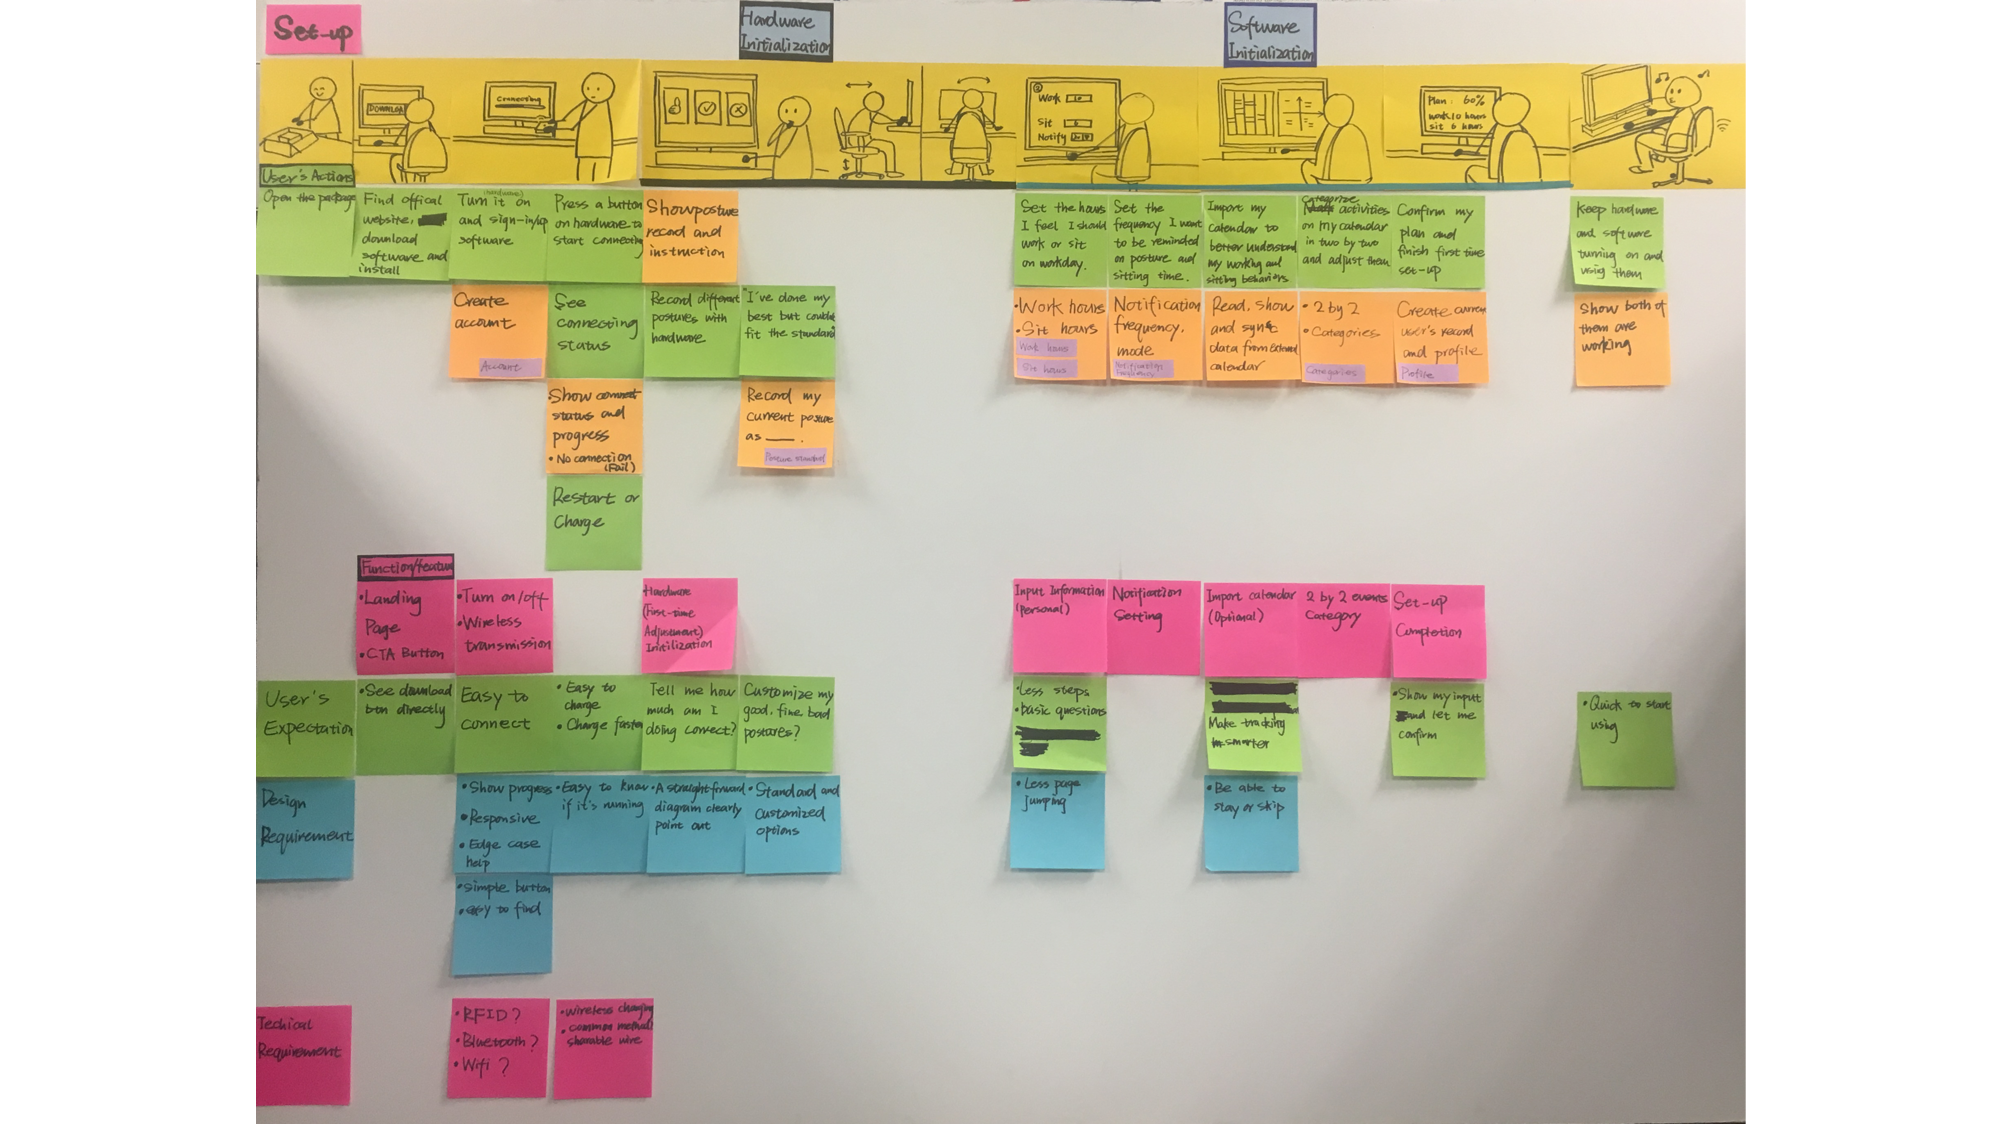 Set-up
Hardware
Initialization
Software
Initialization
DOWNLOAD
Connecting
Work
Sit
Notify
Plan: 60%
work 10 hours
sit 6 hours
User's Actions
Open the package
Find offical
website,
download
software and
install
(hardware)
Turn it on
and sign-in/up
software
Press a button
on hardware to
start connecting
Show posture
record and
instruction
Set the hours
I feel I should
work or sit
on workday.
Set the
frequency I want
to be reminded
on posture and
sitting time.
Import my
calendar to
better understand
my working and
sitting behaviors
Categorize
activities
on my calendar
in two by two
and adjust them
Confirm my
plan and
finish first time
set-up
Keep hardware
and software
turning on and
using them
Create
account
Account
See
connecting
status
Record different
postures with
hardware
"I've done my
best but couldn't
fit the standard"
• Work hours
• Sit hours
Work hours
Sit hours
Notification
frequency.
mode
Notification
Frequency
Read, show
and sync
data from external
calendar
• 2 by 2
• Categories
Categories
Create current
user's record
and profile
Profile
Show both of
them are
working
Show connect
status and
progress
• No connection
(Fail)
Record my
current posture
as ___.
Posture standard
Restart or
Charge
Function/feature
• Landing
Page
• CTA Button
• Turn on/off
• Wireless
transmission
Hardware
(First-time
Adjustment)
Initilization
Input Information
(Personal)
Notification
Setting
Import calendar
(Optional)
2 by 2 events
Category
Set-up
Completion
User's
Expectation
• See download
btn directly
Easy to
connect
• Easy to
charge
• Charge faster
Tell me how
much am I
doing correct?
Customize my
good, fine bad
postures?
• Less steps
• basic questions
Make tracking
smarter
• Show my input
and let me
confirm
• Quick to start
using
Design
Requirement
• Show progress
• Responsive
• Edge case
help
• Easy to know
if it's running
• A straightforward
diagram clearly
point out
• Standard and
customized
options
• Less page
jumping
• Be able to
stay or skip
• Simple button
• easy to find
Techical
Requirement
• RFID?
• Bluetooth?
• Wifi?
• Wireless charging
• common method
sharable wire